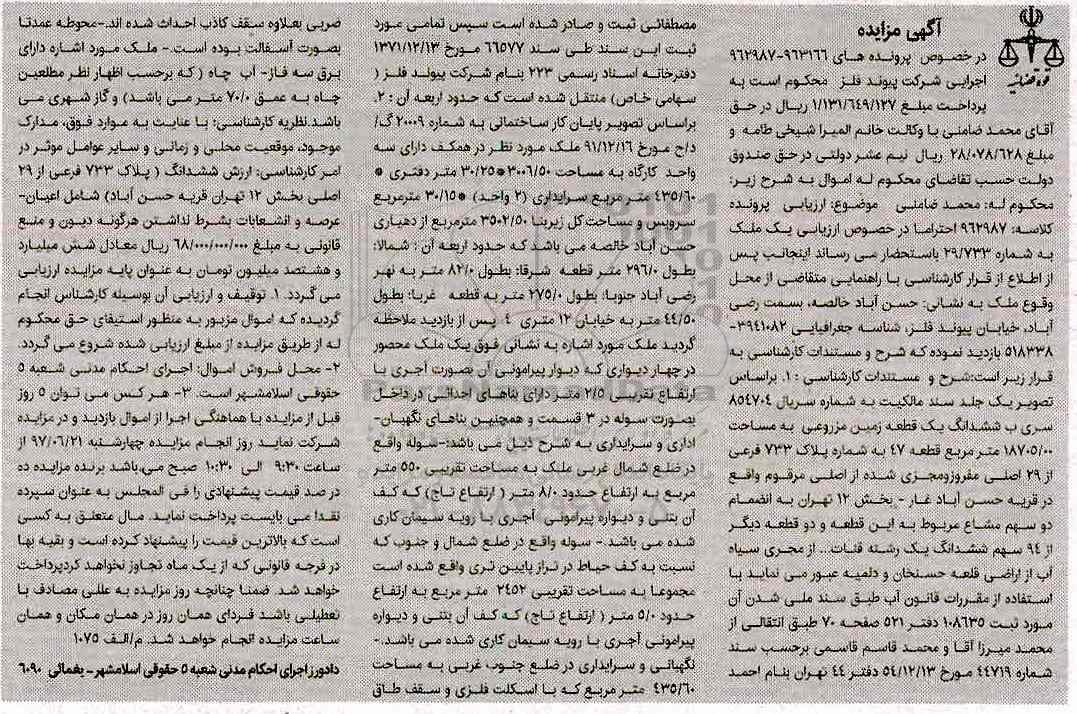 آگهی مزایده
قوه قضائیه
در خصوص پرونده های ۹۶۳۱۶۶-۹۶۲۹۸۷
اجرایی شرکت پیوند فلز محکوم است به
پرداخت مبلغ ۱/۱۳۱/۶۴۹/۱۲۷ ریال در حق
آقای محمد ضامنی با وکالت خانم المیرا شیخی طامه و
مبلغ ۲۸/۰۷۸/۶۲۸ ریال نیم عشر دولتی در حق صندوق
دولت حسب تقاضای محکوم له اموال به شرح زیر:
محکوم له: محمد ضامنی موضوع: ارزیابی پرونده
کلاسه: ۹۶۲۹۸۷ احتراما در خصوص ارزیابی یک ملک
به شماره ۲۹/۷۳۳ باستحضار می رساند اینجانب پس
از اطلاع از قرار کارشناسی با راهنمایی متقاضی از محل
وقوع ملک به نشانی: حسن آباد خالصه، بسمت رضی
آباد، خیابان پیوند فلز، شناسه جغرافیایی ۳۹۴۱۰۸۲-
۵۱۸۳۳۸ بازدید نموده که شرح و مستندات کارشناسی به
قرار زیر است:شرح و مستندات کارشناسی : ۱. براساس
تصویر یک جلد سند مالکیت به شماره سریال ۸۵۴۷۰۴
سری ب ششدانگ یک قطعه زمین مزروعی به مساحت
۱۸۷۰۵/۰۰ متر مربع قطعه ۴۷ به شماره پلاک ۷۳۳ فرعی
از ۲۹ اصلی مفروزومجزی شده از اصلی مرقوم واقع
در قریه حسن آباد غار - بخش ۱۲ تهران به انضمام
دو سهم مشاع مربوط به این قطعه و دو قطعه دیگر
از ۹۴ سهم ششدانگ یک رشته قنات... از مجری سیاه
آب از اراضی قلعه حسنخان و دلمیه عبور می نماید با
استفاده از مقررات قانون آب طبق سند ملی شدن آن
مورد ثبت ۱۰۸۶۳۵ دفتر ۵۲۱ صفحه ۷۰ طبق انتقالی از
محمد میرزا آقا و محمد قاسم قاسمی برحسب سند
شماره ۴۴۷۱۹ مورخ ۵۴/۱۲/۱۳ دفتر ۴۴ تهران بنام احمد
مصطفائی ثبت و صادر شده است سپس تمامی مورد
ثبت این سند طی سند ۶۶۵۷۷ مورخ ۱۳۷۱/۱۲/۱۳
دفترخانه اسناد رسمی ۲۲۳ بنام شرکت پیوند فلز (
سهامی خاص) منتقل شده است که حدود اربعه آن : ۲.
براساس تصویر پایان کار ساختمانی به شماره ۲۰۰۰۹ گ/
د/ح مورخ ۹۱/۱۲/۱۶ ملک مورد نظر در همکف دارای سه
واحد کارگاه به مساحت ۳۰۰۶/۵۰*۳۰/۲۵ متر دفتری *
۴۳۵/۶۰ متر مربع سرایداری (۲ واحد) *۳۰/۱۵ مترمربع
سرویس و مساحت کل زیربنا ۳۵۰۲/۵۰ مترمربع از دهیاری
حسن آباد خالصه می باشد که حدود اربعه آن : شمالا:
بطول ۲۹۶/۰ متر قطعه شرقا: بطول ۸۲/۰ متر به نهر
رضی آباد جنوبا: بطول ۲۷۵/۰ متر به قطعه غربا: بطول
۴۴/۵۰ متر به خیابان ۱۲ متری ۴. پس از بازدید ملاحظه
گردید ملک مورد اشاره به نشانی فوق یک ملک محصور
در چهار دیواری که دیوار پیرامونی آن بصورت آجری با
ارتفاع تقریبی ۲/۵ متر دارای بناهای احداثی در داخل
بصورت سوله در ۳ قسمت و همچنین بناهای نگهبان-
اداری و سرایداری به شرح ذیل می باشد:-سوله واقع
در ضلع شمال غربی ملک به مساحت تقریبی ۵۵۰ متر
مربع به ارتفاع حدود ۸/۰ متر ( ارتفاع تاج) که کف
آن بتنی و دیواره پیرامونی آجری با رویه سیمان کاری
شده می باشد - سوله واقع در ضلع شمال و جنوب که
نسبت به کف حیاط در تراز پایین تری واقع شده است
مجموعا به مساحت تقریبی ۲۴۵۲ متر مربع به ارتفاع
حدود ۵/۰ متر ( ارتفاع تاج) که کف آن بتنی و دیواره
پیرامونی آجری با رویه سیمان کاری شده می باشد.-
نگهبانی و سرایداری در ضلع جنوب غربی به مساحت
۴۳۵/۶۰ متر مربع که با اسکلت فلزی و سقف طاق
ضربی بعلاوه سقف کاذب احداث شده اند.-محوطه عمدتا
بصورت آسفالت بوده است.- ملک مورد اشاره دارای
برق سه فاز- آب چاه ( که برحسب اظهار نظر مطلعین
چاه به عمق ۷۰/۰ متر می باشد) و گاز شهری می
باشد.نظریه کارشناسی: با عنایت به موارد فوق، مدارک
موجود، موقعیت محلی و زمانی و سایر عوامل موثر در
امر کارشناسی: ارزش ششدانگ ( پلاک ۷۳۳ فرعی از ۲۹
اصلی بخش ۱۲ تهران قریه حسن آباد) شامل اعیان-
عرصه و انشعابات بشرط نداشتن هرگونه دیون و منع
قانونی به مبلغ ۶۸/۰۰۰/۰۰۰/۰۰۰ ریال معادل شش میلیارد
و هشتصد میلیون تومان به عنوان پایه مزایده ارزیابی
می گردد. ۱. توقیف و ارزیابی آن بوسیله کارشناس انجام
گردیده که اموال مزبور به منظور استیفای حق محکوم
له از طریق مزایده از مبلغ ارزیابی شده شروع می گردد.
۲- محل فروش اموال: اجرای احکام مدنی شعبه ۵
حقوقی اسلامشهر است. ۳- هر کس می توان ۵ روز
قبل از مزایده با هماهنگی اجرا از اموال بازدید و در مزایده
شرکت نماید روز انجام مزایده چهارشنبه ۹۷/۰۶/۲۱ از
ساعت ۹:۳۰ الی ۱۰:۳۰ صبح می باشد برنده مزایده ده
در صد قیمت پیشنهادی را فی المجلس به عنوان سپرده
نقدا می بایست پرداخت نماید. مال متعلق به کسی
است که بالاترین قیمت را پیشنهاد کرده است و بقیه بها
در فرجه قانونی که از یک ماه تجاوز نخواهد کردپرداخت
خواهد شد. ضمنا چنانچه روز مزایده به عللی مصادف با
تعطیلی باشد فردای همان روز در همان مکان و همان
ساعت مزایده انجام خواهد شد. م/الف ۱۰۷۵
دادورز اجرای احکام مدنی شعبه ۵ حقوقی اسلامشهر - یغمائی ۶۰۹۰